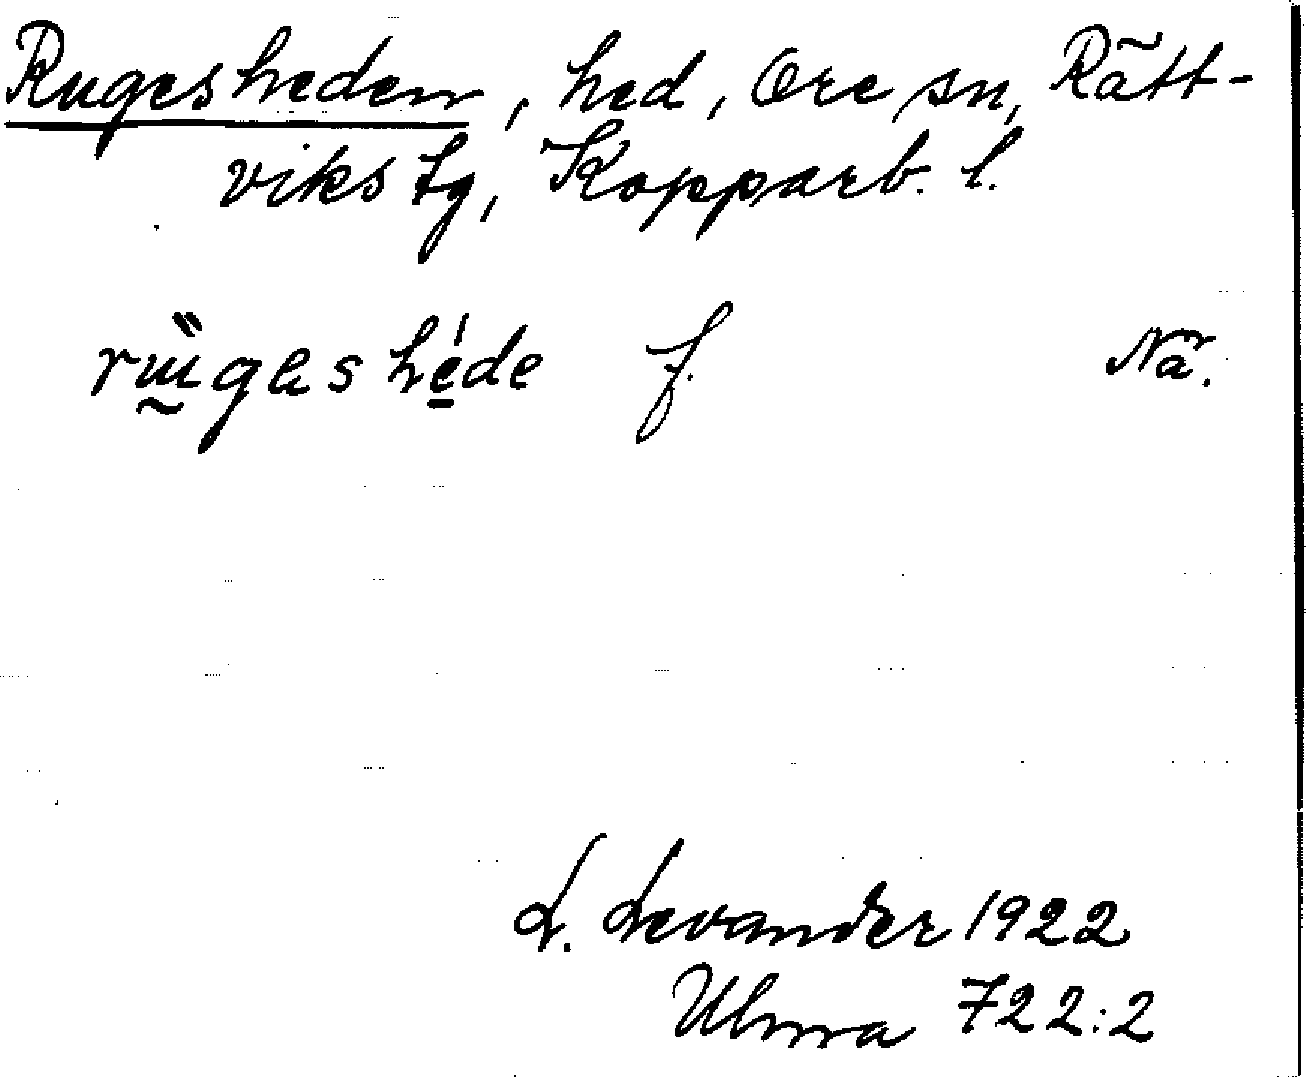 Rugesheden, hed, Ore sn, Rätt-
viks tg, Kopparb. l.
rügeshéde f. Nä.
L. Levander 1922
Ulma 722:2